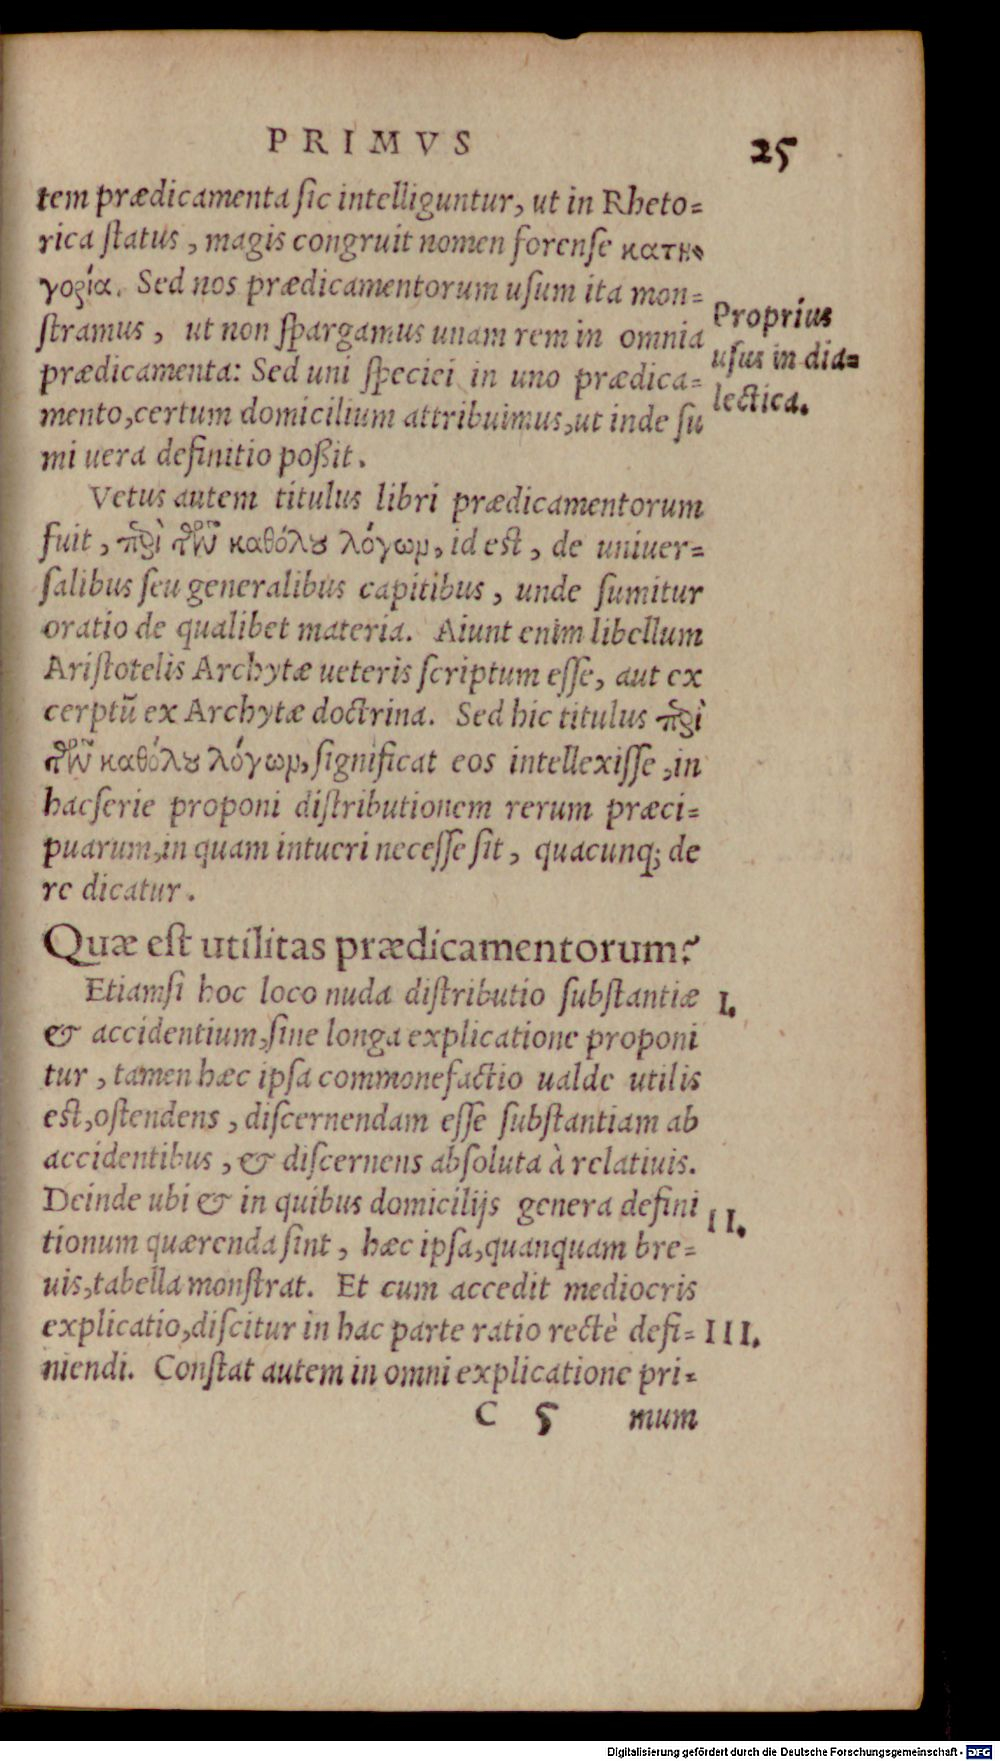 PRIMVS 25
tem prædicamenta ſic intelliguntur, ut in Rheto=
rica ſtatus, magis congruit nomen forenſe κατη
γορία. Sed nos prædicamentorum uſum ita mon=
ſtramus, ut non ſpargamus unam rem in omnia
prædicamenta: Sed uni ſpeciei in uno prædica=
mento, certum domicilium attribuimus, ut inde ſu
mi uera definitio poßit.
Proprius
uſus in dia=
lectica.
Vetus autem titulus libri prædicamentorum
fuit, πϵρὶ τῶν καθόλου λόγων, id est, de uniuer=
ſalibus ſeu generalibus capitibus, unde ſumitur
oratio de qualibet materia. Aiunt enim libellum
Ariſtotelis Archytæ ueteris ſcriptum eſſe, aut ex
cerptũ ex Archytæ doctrina. Sed hic titulus πϵρὶ
τῶν καθόλου λόγων, ſignificat eos intellexiſſe, in
hac ſerie proponi diſtributionem rerum præci=
puarum, in quam intueri neceſſe ſit, quacunq; de
re dicatur.
Quæ eſt utilitas prædicamentorum?
Etiamſi hoc loco nuda diſtributio ſubſtantiæ I.
& accidentium, ſine longa explicatione proponi
tur, tamen hæc ipſa commonefactio ualde utilis
est, oſtendens, diſcernendam eſſe ſubſtantiam ab
accidentibus, & diſcernens abſoluta à relatiuis.
Deinde ubi & in quibus domicilijs genera defini II.
tionum quærenda ſint, hæc ipſa, quanquam bre=
uis, tabella monſtrat. Et cum accedit mediocris
explicatio, diſcitur in hac parte ratio rectè defi= III.
niendi. Conſtat autem in omni explicatione pri=
C 5 mum
Digitalisierung gefördert durch die Deutsche Forschungsgemeinschaft - DFG